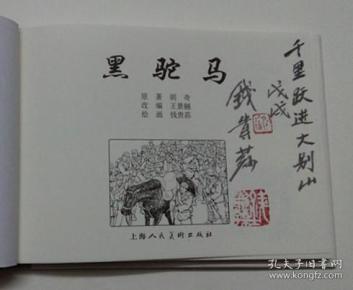 黑驼马
原著 胡奇
改编 王景
绘画 钱贵荪
上海人民美术出版社
千里跃进大别山
戊戌
钱贵荪
孔夫子旧书网